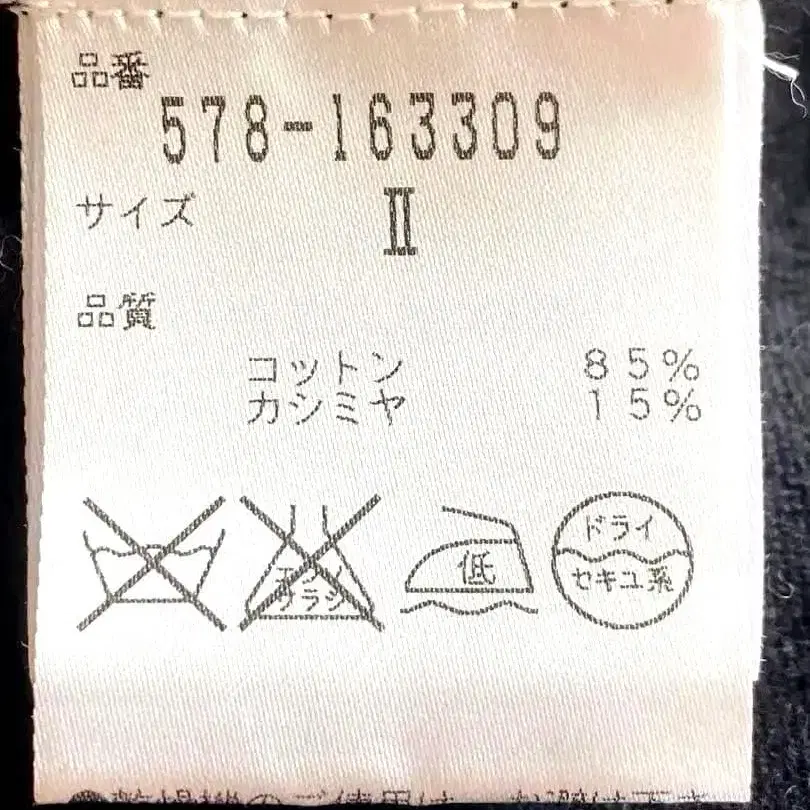 品番
578-163309
サイズ
II
品質
コットン 85%
カシミヤ 15%
低
ドライ
セキユ系